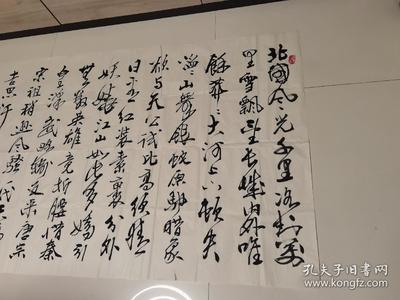 北國风光千里冰封萬
里雪飘望长城内外唯
餘莽〻大河上下顿失
滔〻山舞银蛇原驰蜡象
欲与天公试比高须晴
日看红装素裹分外
妖娆江山如此多娇引
無数英雄竞折腰惜秦
皇汉武略输文采唐宗
宋祖稍逊风骚一代天
吉思汗
孔夫子旧书网
www.kongfz.com